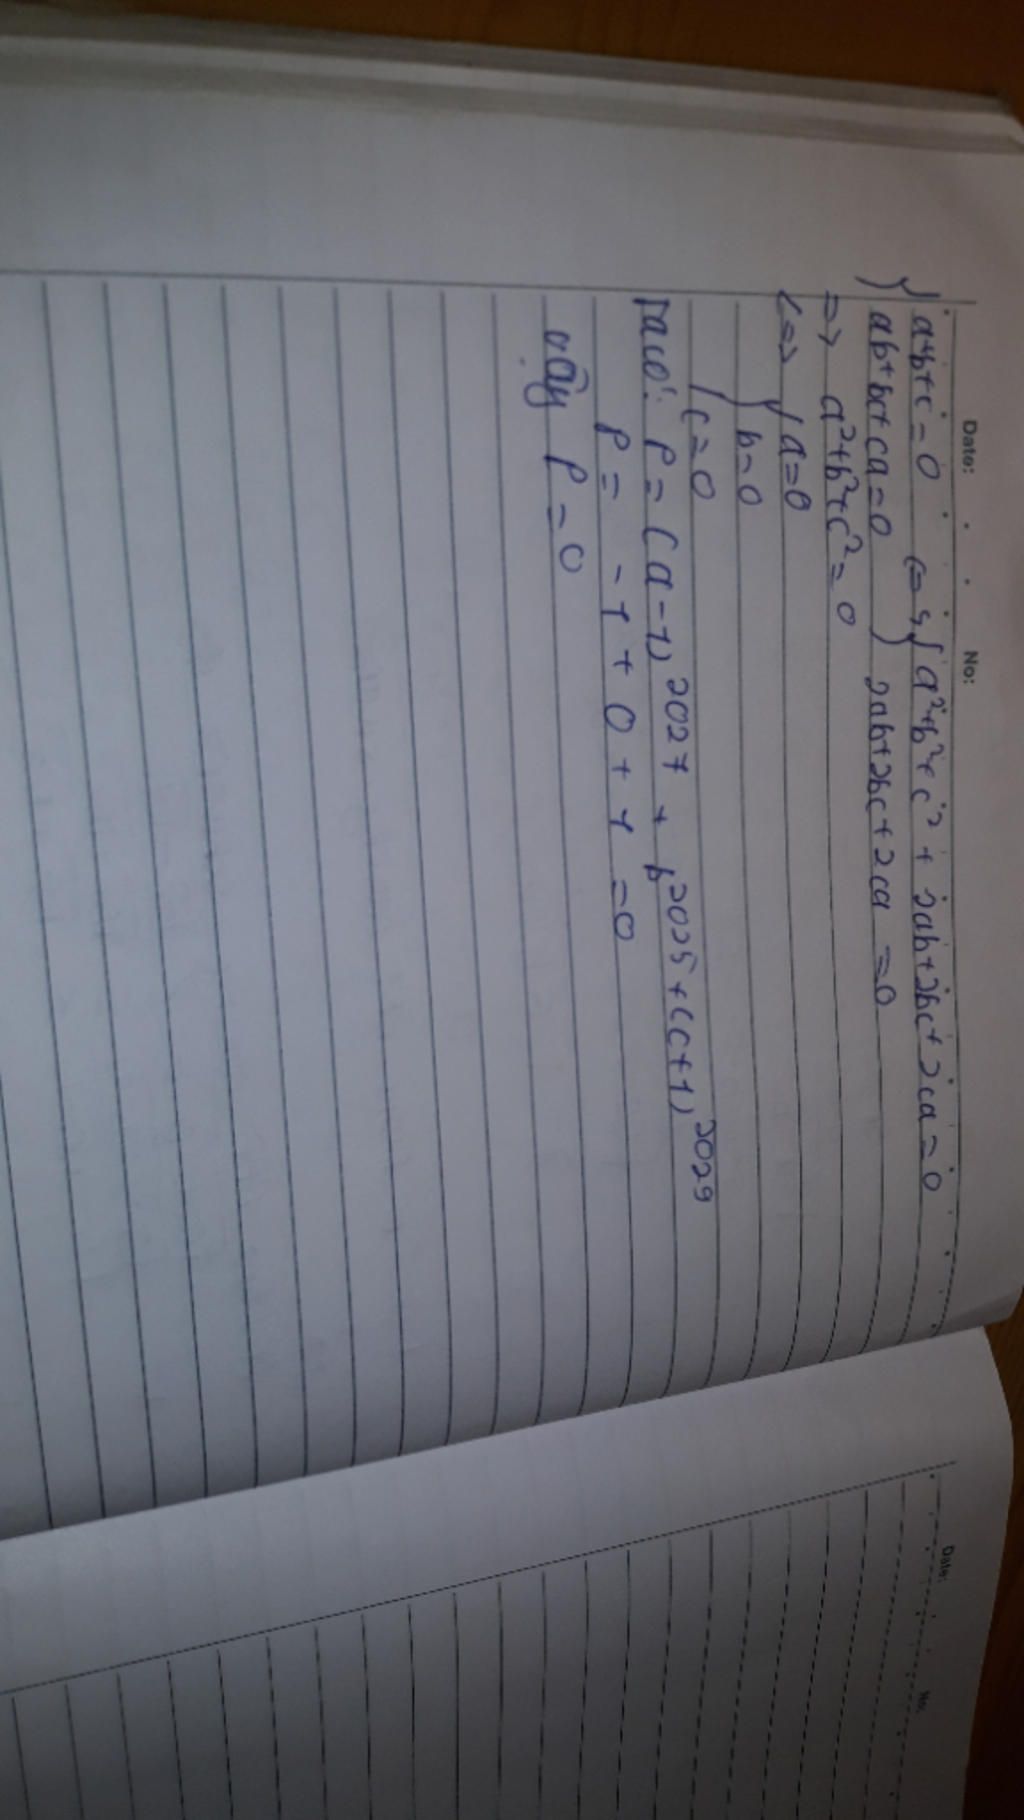 Date: No:
{ a+b+c=0 <=> { a²+b²+c² + 2ab+2bc+2ca=0
{ ab+bc+ca=0 { 2ab+2bc+2ca =0
=> a²+b²+c²=0
<=> { a=0
{ b=0
{ c=0
Ta có: P=(a-1)²⁰²⁷ + b²⁰²⁵+(c+1)²⁰²⁹
P= -1+0+1=0
vậy P=0
Date: No: